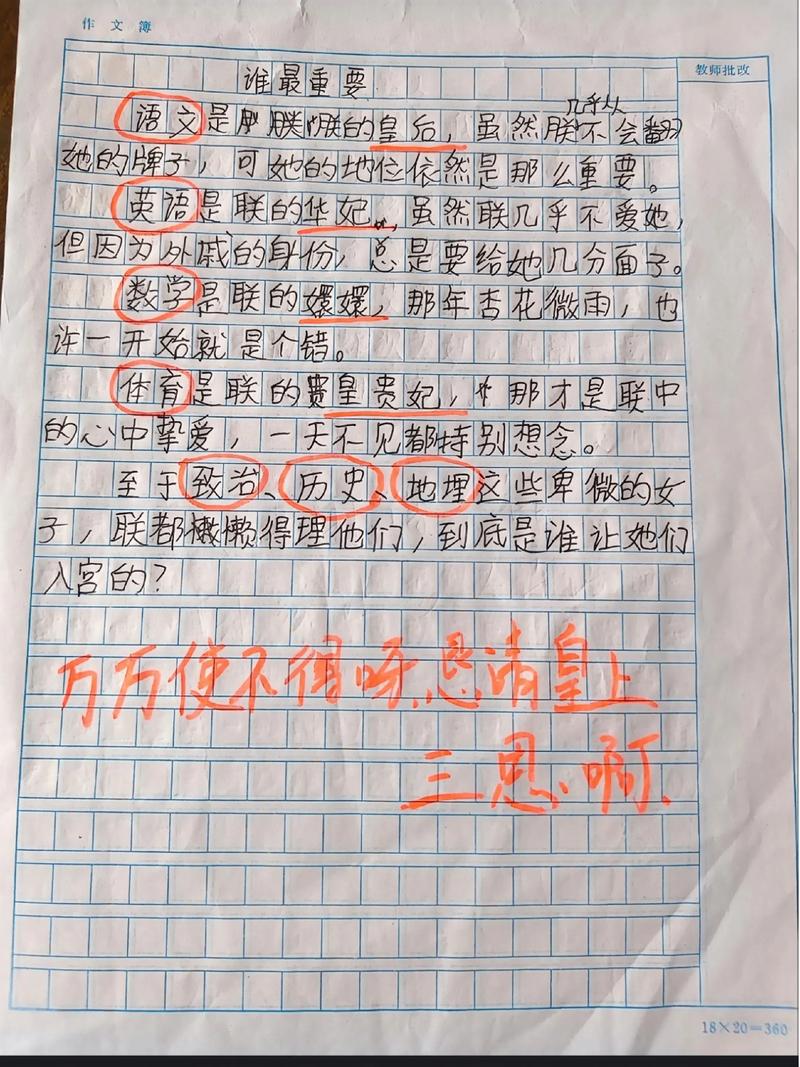 作文簿
教师批改
谁最重要
语文是朕的皇后，虽然朕几乎从不会翻
她的牌子，可她的地位依然是那么重要。
英语是联的华妃，虽然联几乎不爱她，
但因为外戚的身份，总是要给她几分面子。
数学是联的嬛嬛，那年杏花微雨，也
许一开始就是个错。
体育是联的皇贵妃，那才是联中
的心中挚爱，一天不见都特别想念。
至于致治、历史、地埋这些卑微的女
子，联都懒得理他们，到底是谁让她们
入宫的？
万万使不得呀，恳请皇上
三恩啊
18×20=360